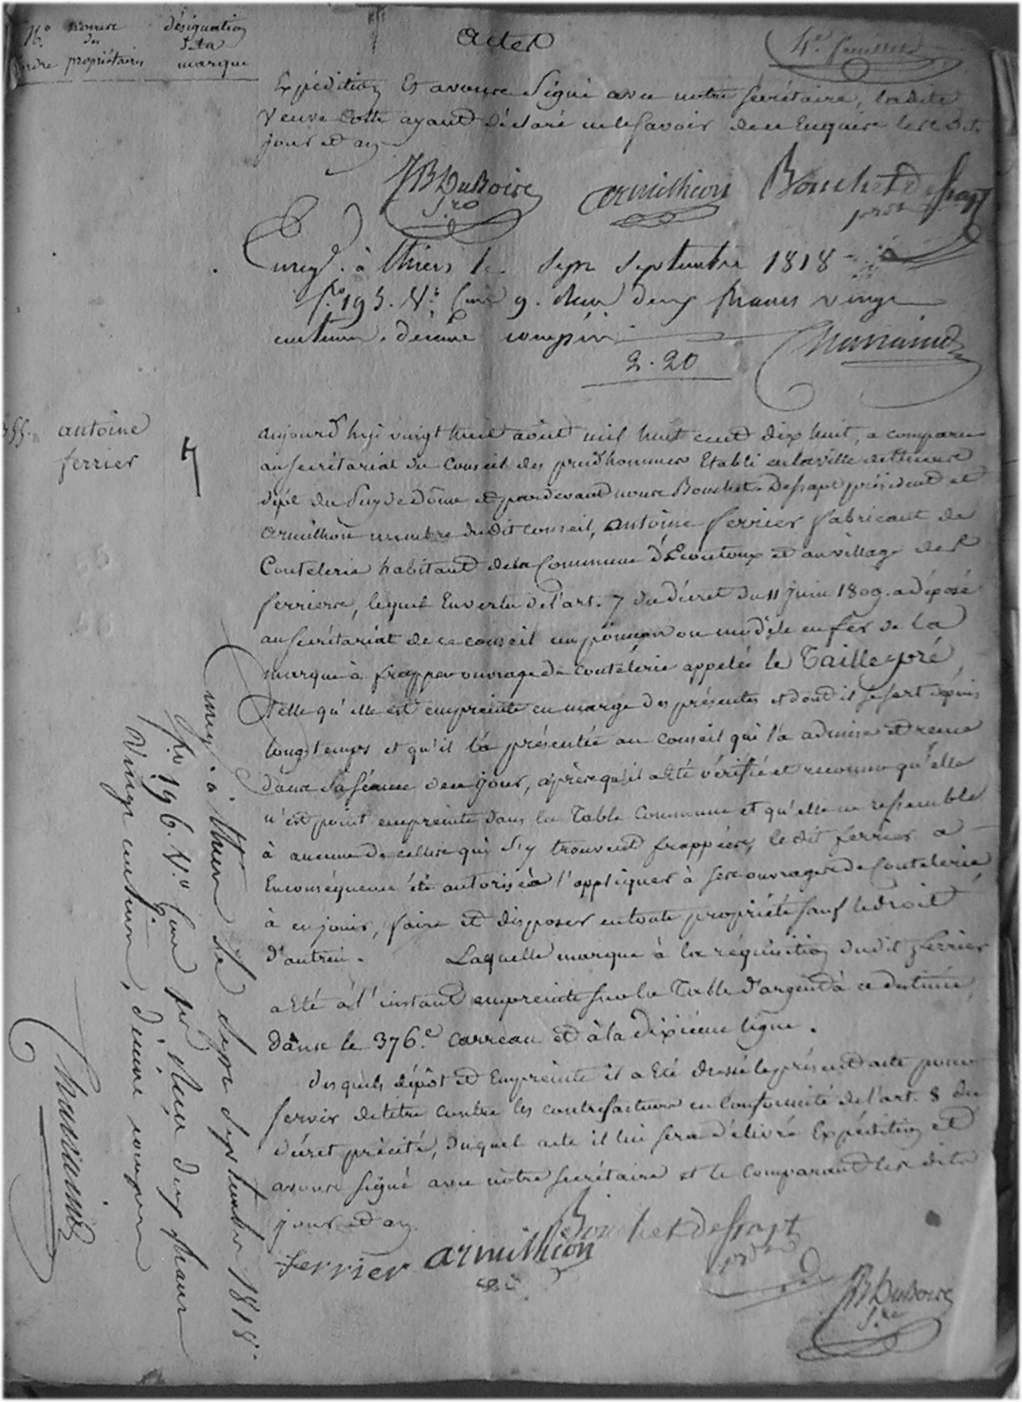 N.o noms désignation
d'ordre des de la
propriétaires marque
Actes
4e feuillet
Expédition Et avons Signé avec notre Secrétaire, ladite
Veuve Cotte ayant déclaré ne le savoir de ce Enquise les dits
jour et an
JB Dubois Armilhion Bouchet Dessapt
S.re prdt
Enreg. à Thiers le Sept Septembre 1818
f.o 193. V.o Case 9. Reçu deux francs vingt
centimes, décime compris
2.20 Chassaing
antoine
ferrier
aujourd'huy vingt huit août mil huit cent dix huit, a comparu
au secrétariat du Conseil des prud'hommes Etabli en la ville de thiers
dépt. du Puy de Dôme et par devant nous Bouchet-Dessapt président et
Armilhion membre du dit conseil, antoine ferrier fabricant de
Coutelerie habitant de la Commune d'Escoutoux et au village de
ferriere, lequel En vertu de l'art. 7 du décret du 11 juin 1809. a déposé
au secrétariat de ce conseil un poinçon ou modèle en fer de la
marque à frapper ouvrage de coutélerie appelée le Taillepré,
Telle qu'elle est empreinte en marge des présentes et dont il se sert depuis
longtemps et qu'il l'a présentée au conseil qui l'a admise et remise
dans sa séance de ce jour, après qu'il a été vérifié et reconnu qu'elle
n'est point empreinte dans la Table Commune et qu'elle ne ressemble
à aucune de celles qui s'y trouvent frappées, le dit ferrier a
En conséquence été autorisé à l'appliquer à ses ouvrages de Coutelerie
à en jouir, faire et disposer en toute propriété sauf le droit
d'autrui. Laquelle marque à la réquisition dudit ferrier
a Eté à l'instant empreinte sur la Table d'argent à ce destinée,
dans le 376.e carreau et à la dixième ligne.
Desquels dépôt et Empreinte il a Eté dressé le présent acte pour
servir de titre contre les contrefacteurs en Conformité de l'art. 8 du
décret précité, duquel acte il lui sera délivré Expédition et
avons signé avec notre secrétaire et le Comparant les dits
jour et an.
ferrier armilhion Bouchet Dessapt
prdt
JB Dubois
S.re
Enreg. à Thiers le Sept Septembre 1818.
f.o 196. V.o Case 1re Reçu deux francs
Vingt centimes, décime compris
Chassaing